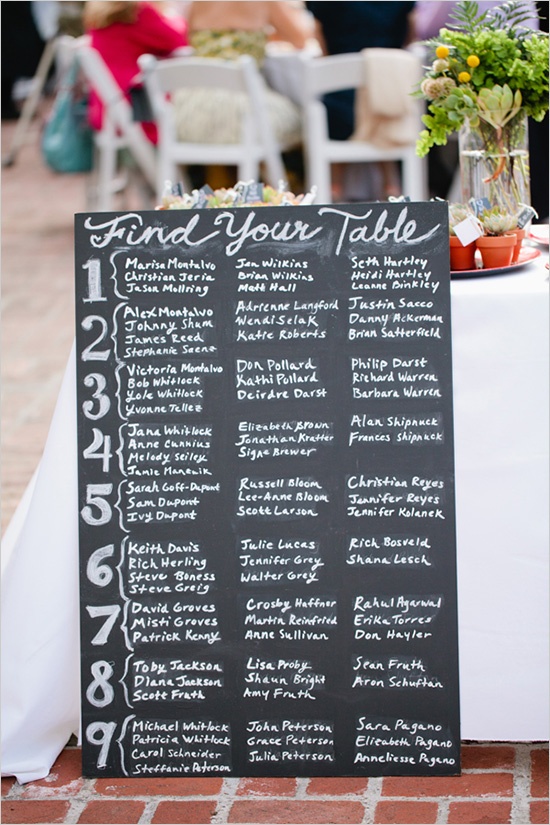 Find Your Table
1 Marisa Montalvo Jen Wilkins Seth Hartley
Christian Jeria Brian Wilkins Heidi Hartley
Jason Mollring Matt Hall Leanne Brinkley
2 Alex Montalvo Adrienne Langford Justin Sacco
Johnny Shum Wendi Selak Danny Ackerman
James Reed Katie Roberts Brian Satterfield
Stephanie Saenz
3 Victoria Montalvo Don Pollard Philip Darst
Bob Whitlock Kathi Pollard Richard Warren
Lole Whitlock Deirdre Darst Barbara Warren
Yvonne Tellez
4 Jana Whitlock Elizabeth Brown Alan Shipnuck
Anne Cunnius Jonathan Kratter Frances Shipnuck
Melody Seiley Signe Brewer
Jamie
5 Sarah Goff-Dupont Russell Bloom Christian Reyes
Sam Dupont Lee-Anne Bloom Jennifer Reyes
Ivy Dupont Scott Larson Jennifer Kolanek
6 Keith Davis Julie Lucas Rich Bosveld
Rich Herling Jennifer Grey Shana Lesch
Steve Boness Walter Grey
Steve Greig
7 David Groves Crosby Haffner Rahul Agarwal
Misti Groves Martin Reinfried Erika Torres
Patrick Kenny Anne Sullivan Don Hayler
8 Toby Jackson Lisa Proby Sean Fruth
Diana Jackson Shaun Bright Aron Schuftan
Scott Fruth Amy Fruth
9 Michael Whitlock John Peterson Sara Pagano
Patricia Whitlock Grace Peterson Elizabeth Pagano
Carol Schneider Julia Peterson Annaliesse Pagano
Steffanie Peterson